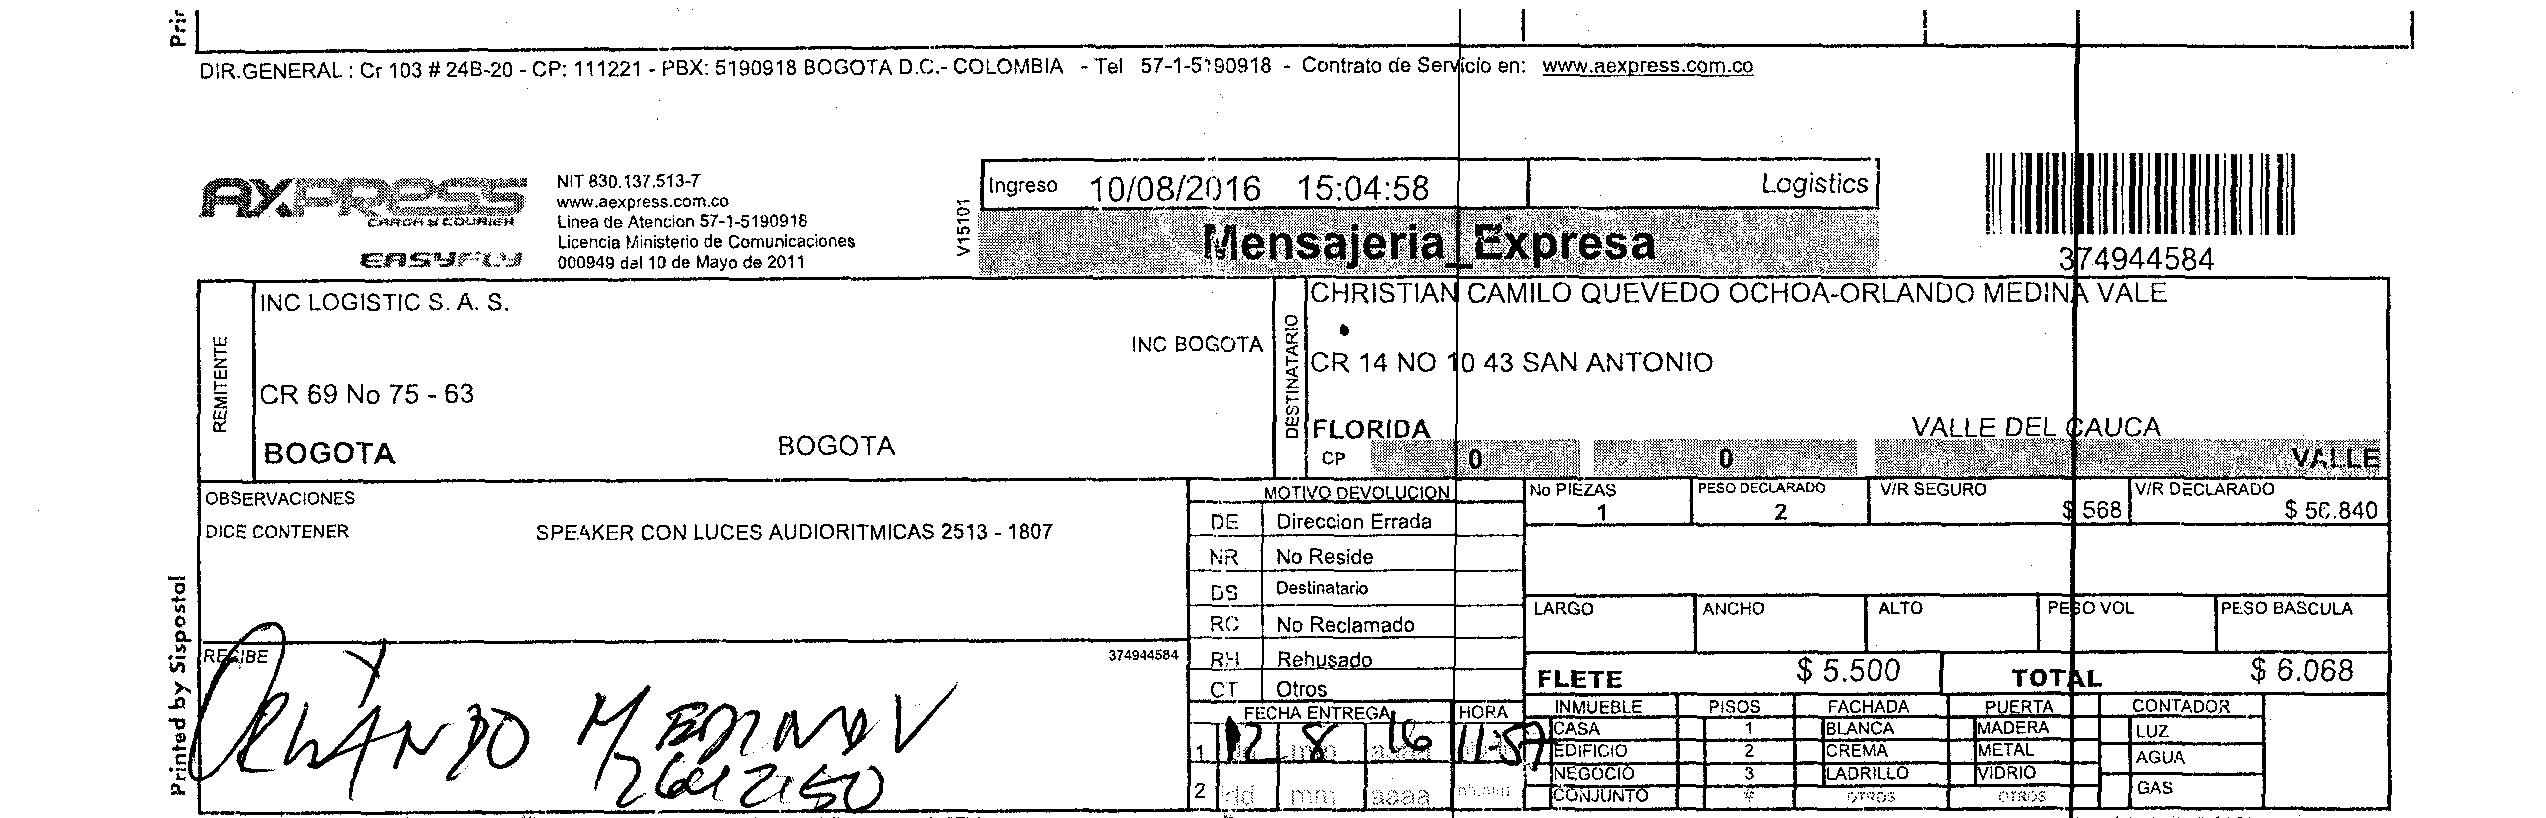 Prir
DIR.GENERAL : Cr 103 # 24B-20 - CP: 111221 - PBX: 5190918 BOGOTA D.C.- COLOMBIA - Tel 57-1-5190918 - Contrato de Servicio en: www.aexpress.com.co
AXPRESS
CARGA Y COURIER
EASYFLY
NIT 830.137.513-7
www.aexpress.com.co
Linea de Atencion 57-1-5190918
Licencia Ministerio de Comunicaciones
000949 dal 10 de Mayo de 2011
V15101
Ingreso 10/08/2016 15:04:58 Logistics
Mensajeria_Expresa
374944584
REMITENTE
INC LOGISTIC S. A. S.
INC BOGOTA
CR 69 No 75 - 63
BOGOTA BOGOTA
DESTINATARIO
CHRISTIAN CAMILO QUEVEDO OCHOA-ORLANDO MEDINA VALE
CR 14 NO 10 43 SAN ANTONIO
FLORIDA VALLE DEL CAUCA
CP 0 0 VALLE
OBSERVACIONES
DICE CONTENER SPEAKER CON LUCES AUDIORITMICAS 2513 - 1807
MOTIVO DEVOLUCION
DE Direccion Errada
NR No Reside
DS Destinatario
RC No Reclamado
RH Rehusado
CT Otros
No PIEZAS PESO DECLARADO V/R SEGURO V/R DECLARADO
1 2 $ 568 $ 56.840
LARGO ANCHO ALTO PESO VOL PESO BASCULA
FLETE $ 5.500 TOTAL $ 6.068
RECIBE 374944584
ORLANDO MEDINA V
FECHA ENTREGA HORA
1 12 8 16 11:57
2 dd mm aaaa
INMUEBLE PISOS FACHADA PUERTA CONTADOR
CASA 1 BLANCA MADERA LUZ
EDIFICIO 2 CREMA METAL AGUA
NEGOCIO 3 LADRILLO VIDRIO
CONJUNTO # OTROS OTROS GAS
Printed by Sispostal